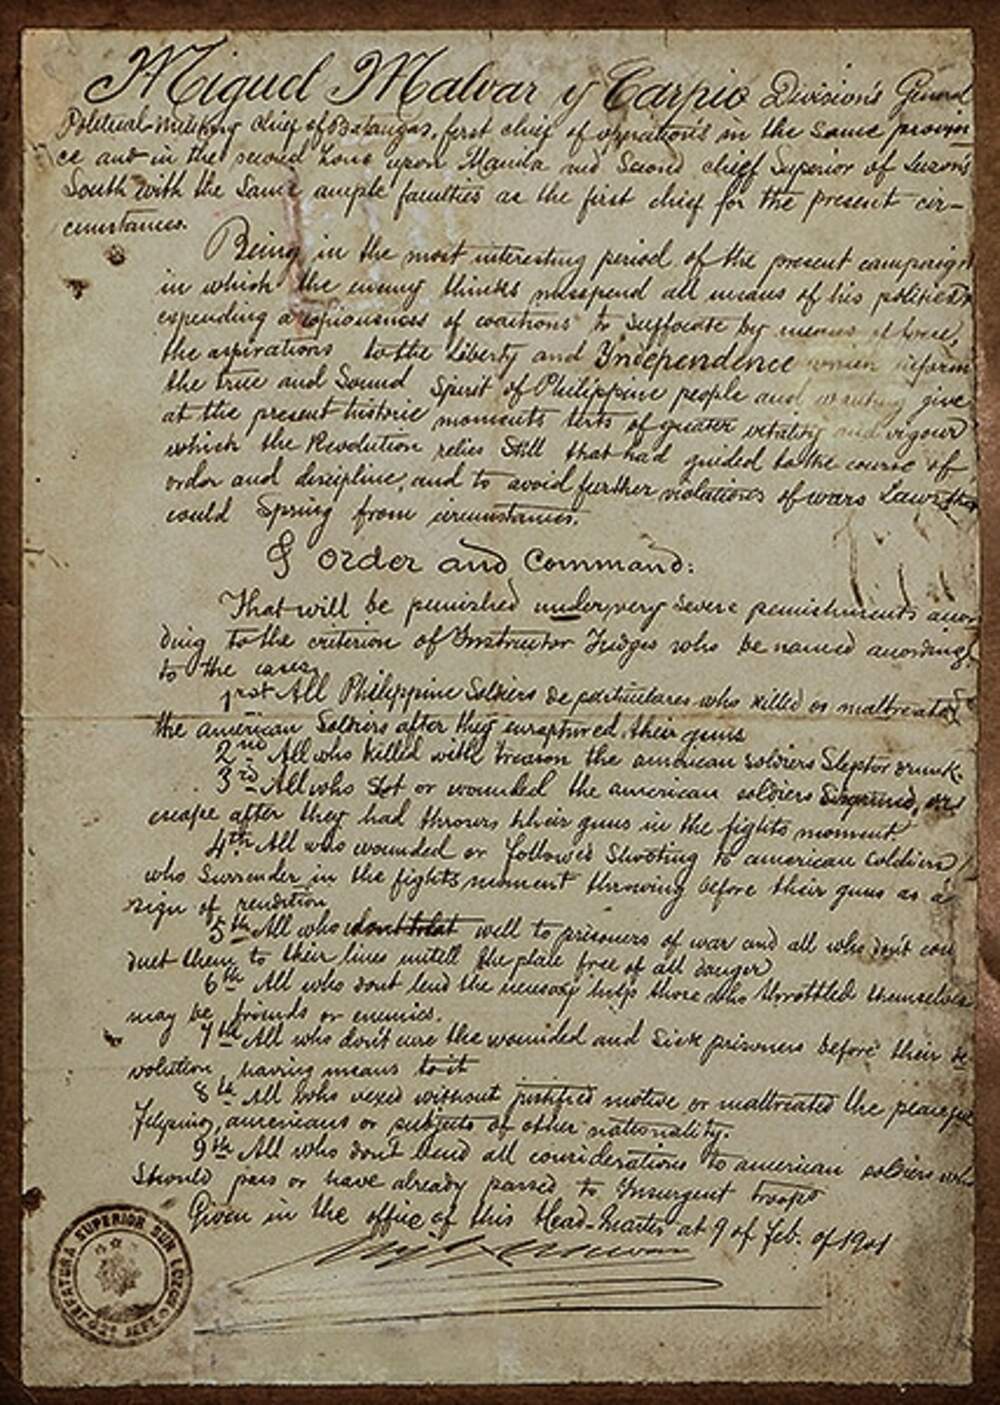 Miguel Malvar y Carpio Division's General
Political-Military chief of Batangas, first chief of operations in the same provin
ce and in the second Zone upon Manila and Second chief Superior of Luzon's
South with the same ample faculties as the first chief for the present cir-
cumstances.
Being in the most interesting period of the present campaign
in which the enemy thinks misspend all means of his politics
expending a copiousness of coactions to suffocate by means of force,
the aspirations to the liberty and Independence which inform
the true and Sound Spirit of Philippine people and wanting give
at the present historic moments tests of greater vitality and vigour
which the Revolution relies Still that had guided to the course of
order and discipline, and to avoid further violations of wars Laws that
could Spring from circumstances.
I order and Command:
That will be punished under very severe punishments accor
ding to the criterion of Instructor Judges who be named according
to the cases,
1rst All Philippine Soldiers or particulares who killed or maltreated
the american Soldiers after they their guns
2nd All who killed with treason the american soldiers Slept or drunk.
3rd All who Shot or wounded the american soldiers
escape after they had thrown their guns in the fights moment.
4th All who wounded or followed Shooting to american Soldiers
who Surrender in the fights moment throwing before their guns as a
sign of rendition
5th All who dont treat well to prisoners of war and all who don't con
duct them to their lines untill the place free of all danger
6th All who dont lend the necessary help those who throttled themselves
may be friends or enemies.
7th All who don't cure the wounded and Sick prisoners before their de
volution, having means to it
8th All who vexed without justified motive or maltreated the peaceful
Filipino, americans or subjects of other nationality.
9th All who don't lend all considerations to american soldiers who
Should pass or have already passed to Insurgent troops
Given in the office of this Head-Quarter at 9 of Feb. of 1901
JEFATURA SUPERIOR SUR LUZON
2º JEFE